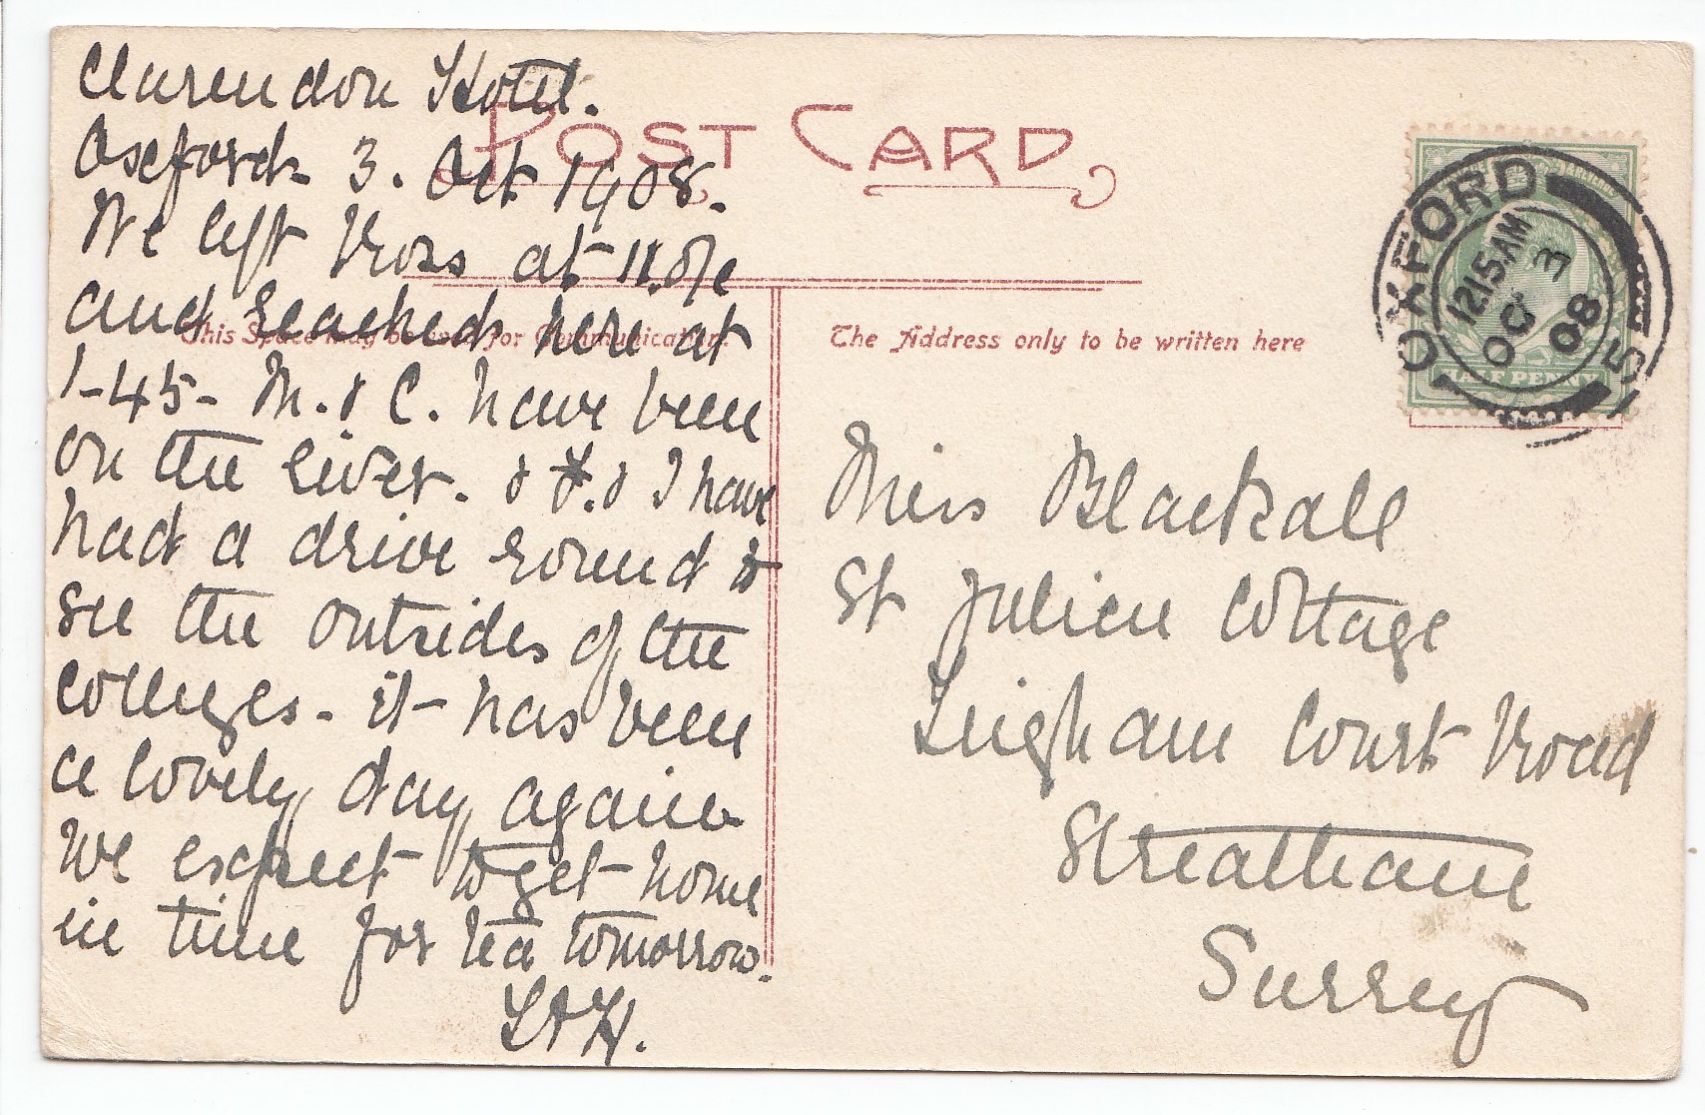 Clarendon Hotel.
Oxford. 3. Oct 1908.
We left Ross at 11.
and reached here at
1-45- M. & C. have been
on the river. & & I have
had a drive round to
see the outsides of the
colleges - it has been
a lovely day again
We expect to get home
in time for tea tomorrow.
POST CARD
This Space may be used for Communication.
The Address only to be written here
Miss Blackall
St Julien Cottage
Leigham Court Road
Streatham
Surrey
OXFORD
12.15 AM
OC 3
08
HALF PENNY